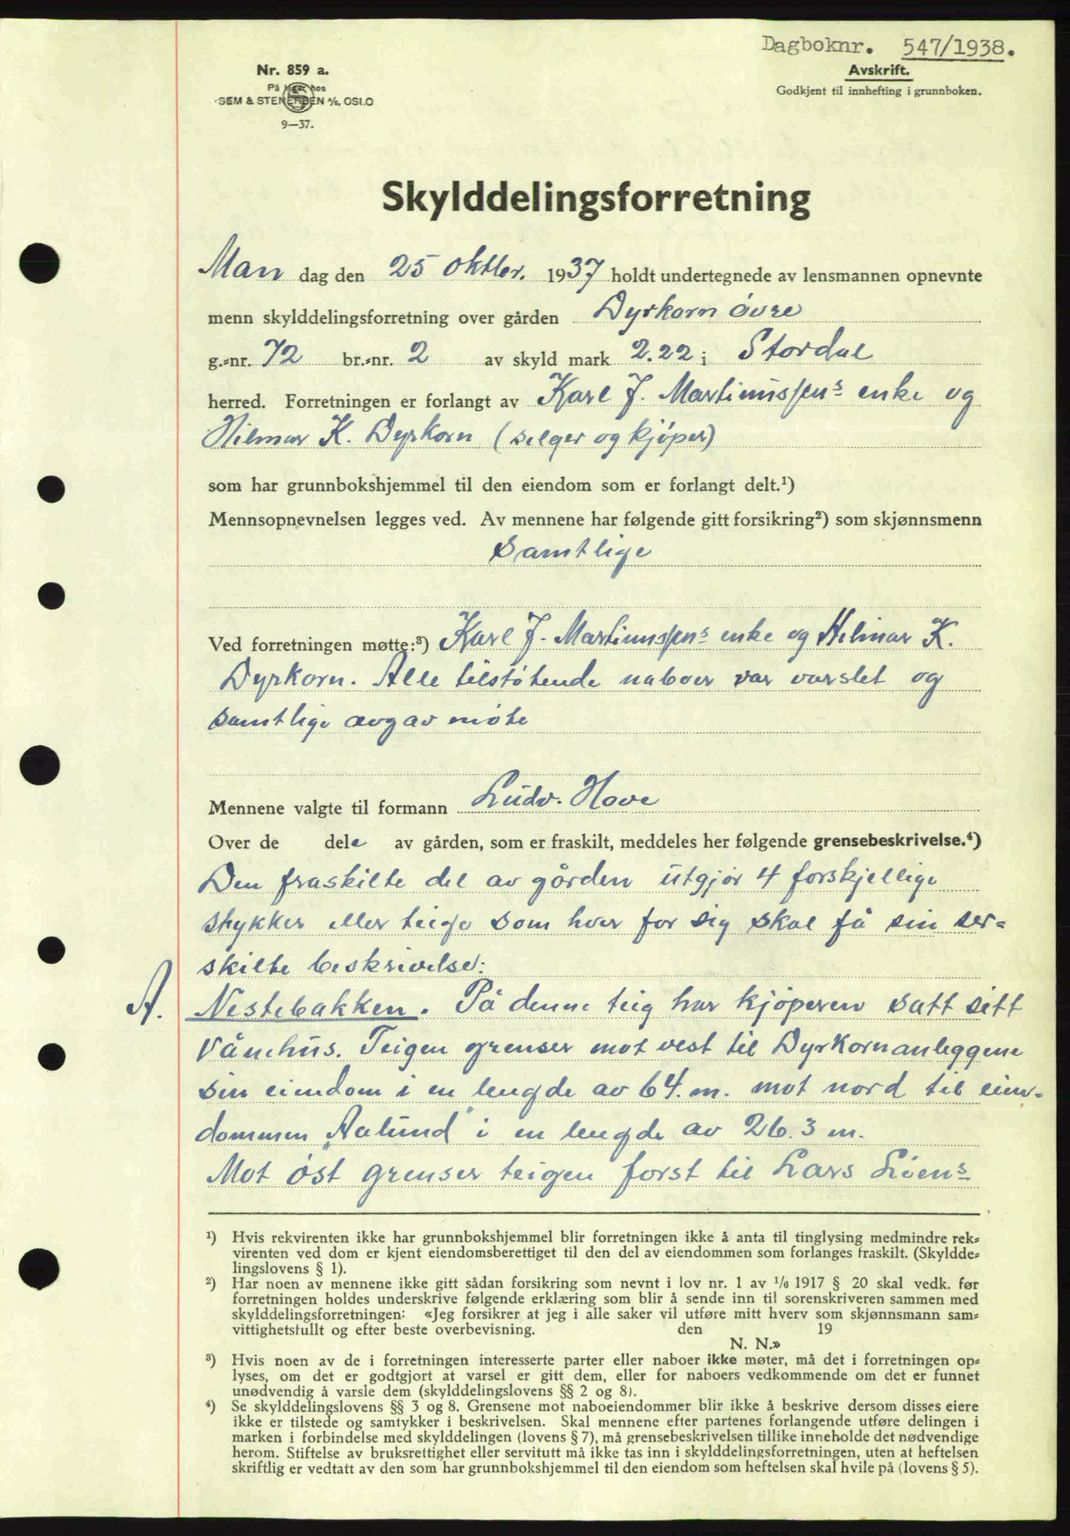 Dagboknr. 547/1938.
Nr. 859 a.
På lager hos
SEM & STENERSEN A/S, OSLO
9—37.
Avskrift.
Godkjent til innhefting i grunnboken.
Skylddelingsforretning
Man dag den 25 oktbr. 1937 holdt undertegnede av lensmannen opnevnte
menn skylddelingsforretning over gården Dyrkorn øvre
g.-nr. 72 br.-nr. 2 av skyld mark 2.22 i Stordal
herred. Forretningen er forlangt av Karl J. Martinussens enke og
Hilmar K. Dyrkorn (selger og kjøper)
som har grunnbokshjemmel til den eiendom som er forlangt delt.¹)
Mennsopnevnelsen legges ved. Av mennene har følgende gitt forsikring²) som skjønnsmenn
Samtlige
Ved forretningen møtte:³) Karl J. Martinussens enke og Hilmar K.
Dyrkorn. Alle tilstøtende naboer var varslet og
samtlige avgav møte
Mennene valgte til formann Ludv. Hove
Over de dele av gården, som er fraskilt, meddeles her følgende grensebeskrivelse.⁴)
Den fraskilte del av gården utgjør 4 forskjellige
stykker eller teige som hver for sig skal få sin ser=
skilte beskrivelse:
A. Nestebakken. På denne teig har kjøperen satt sitt
Vånehus. Teigen grenser mot vest til Dyrkornanleggene
sin eiendom i en lengde av 64. m. mot nord til eien-
dommen „Aalund" i en lengde av 26.3 m.
Mot øst grenser teigen først til Lars Liens
¹) Hvis rekvirenten ikke har grunnbokshjemmel blir forretningen ikke å anta til tinglysing medmindre rek-
virenten ved dom er kjent eiendomsberettiget til den del av eiendommen som forlanges fraskilt. (Skyldde-
lingslovens § 1).
²) Har noen av mennene ikke gitt sådan forsikring som nevnt i lov nr. 1 av 1/6 1917 § 20 skal vedk. før
forretningen holdes underskrive følgende erklæring som blir å sende inn til sorenskriveren sammen med
skylddelingsforretningen: «Jeg forsikrer at jeg i alle saker vil utføre mitt hverv som skjønnsmann sam-
vittighetsfullt og efter beste overbevisning. den 19
N. N.»
³) Hvis noen av de i forretningen interesserte parter eller naboer ikke møter, må det i forretningen op-
lyses, om det er godtgjort at varsel er gitt dem, eller for naboers vedkommende om det er funnet
unødvendig å varsle dem (skylddelingslovens §§ 2 og 8).
⁴) Se skylddelingslovens §§ 3 og 8. Grensene mot naboeiendommer blir ikke å beskrive dersom disses eiere
ikke er tilstede og samtykker i beskrivelsen. Skal mennene efter partenes forlangende utføre delingen i
marken i forbindelse med skylddelingen (lovens § 7), må grensebeskrivelsen tillike inneholde det nødvendige
herom. Stiftelse av bruksrettighet eller servitutt må ikke tas inn i skylddelingsforretningen, uten at heftelsen
skriftlig er vedtatt av den som har grunnbokshjemmel til den eiendom som heftelsen skal hvile på (lovens § 5).